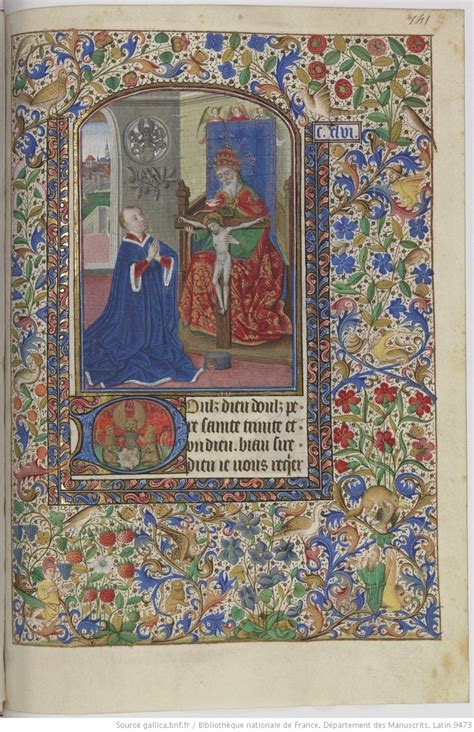 C. xlvi.
Doulz dieu doulz pe
re sainte trinite et
un dieu. biau sire
dieu ie vous reqer
Source gallica.bnf.fr / Bibliothèque nationale de France. Département des Manuscrits. Latin 9473